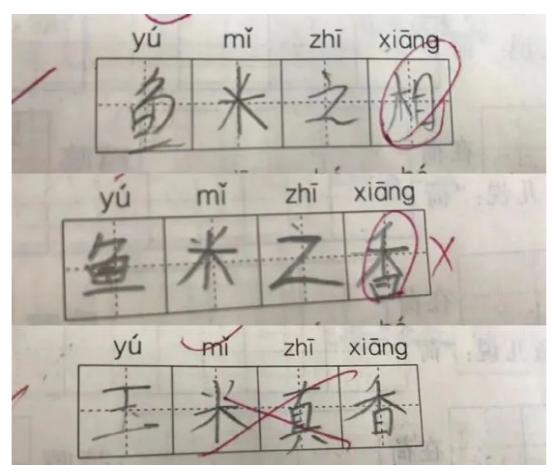 yú mǐ zhī xiāng
鱼米之相
yú mǐ zhī xiāng
鱼米之香
yú mǐ zhī xiāng
玉米真香